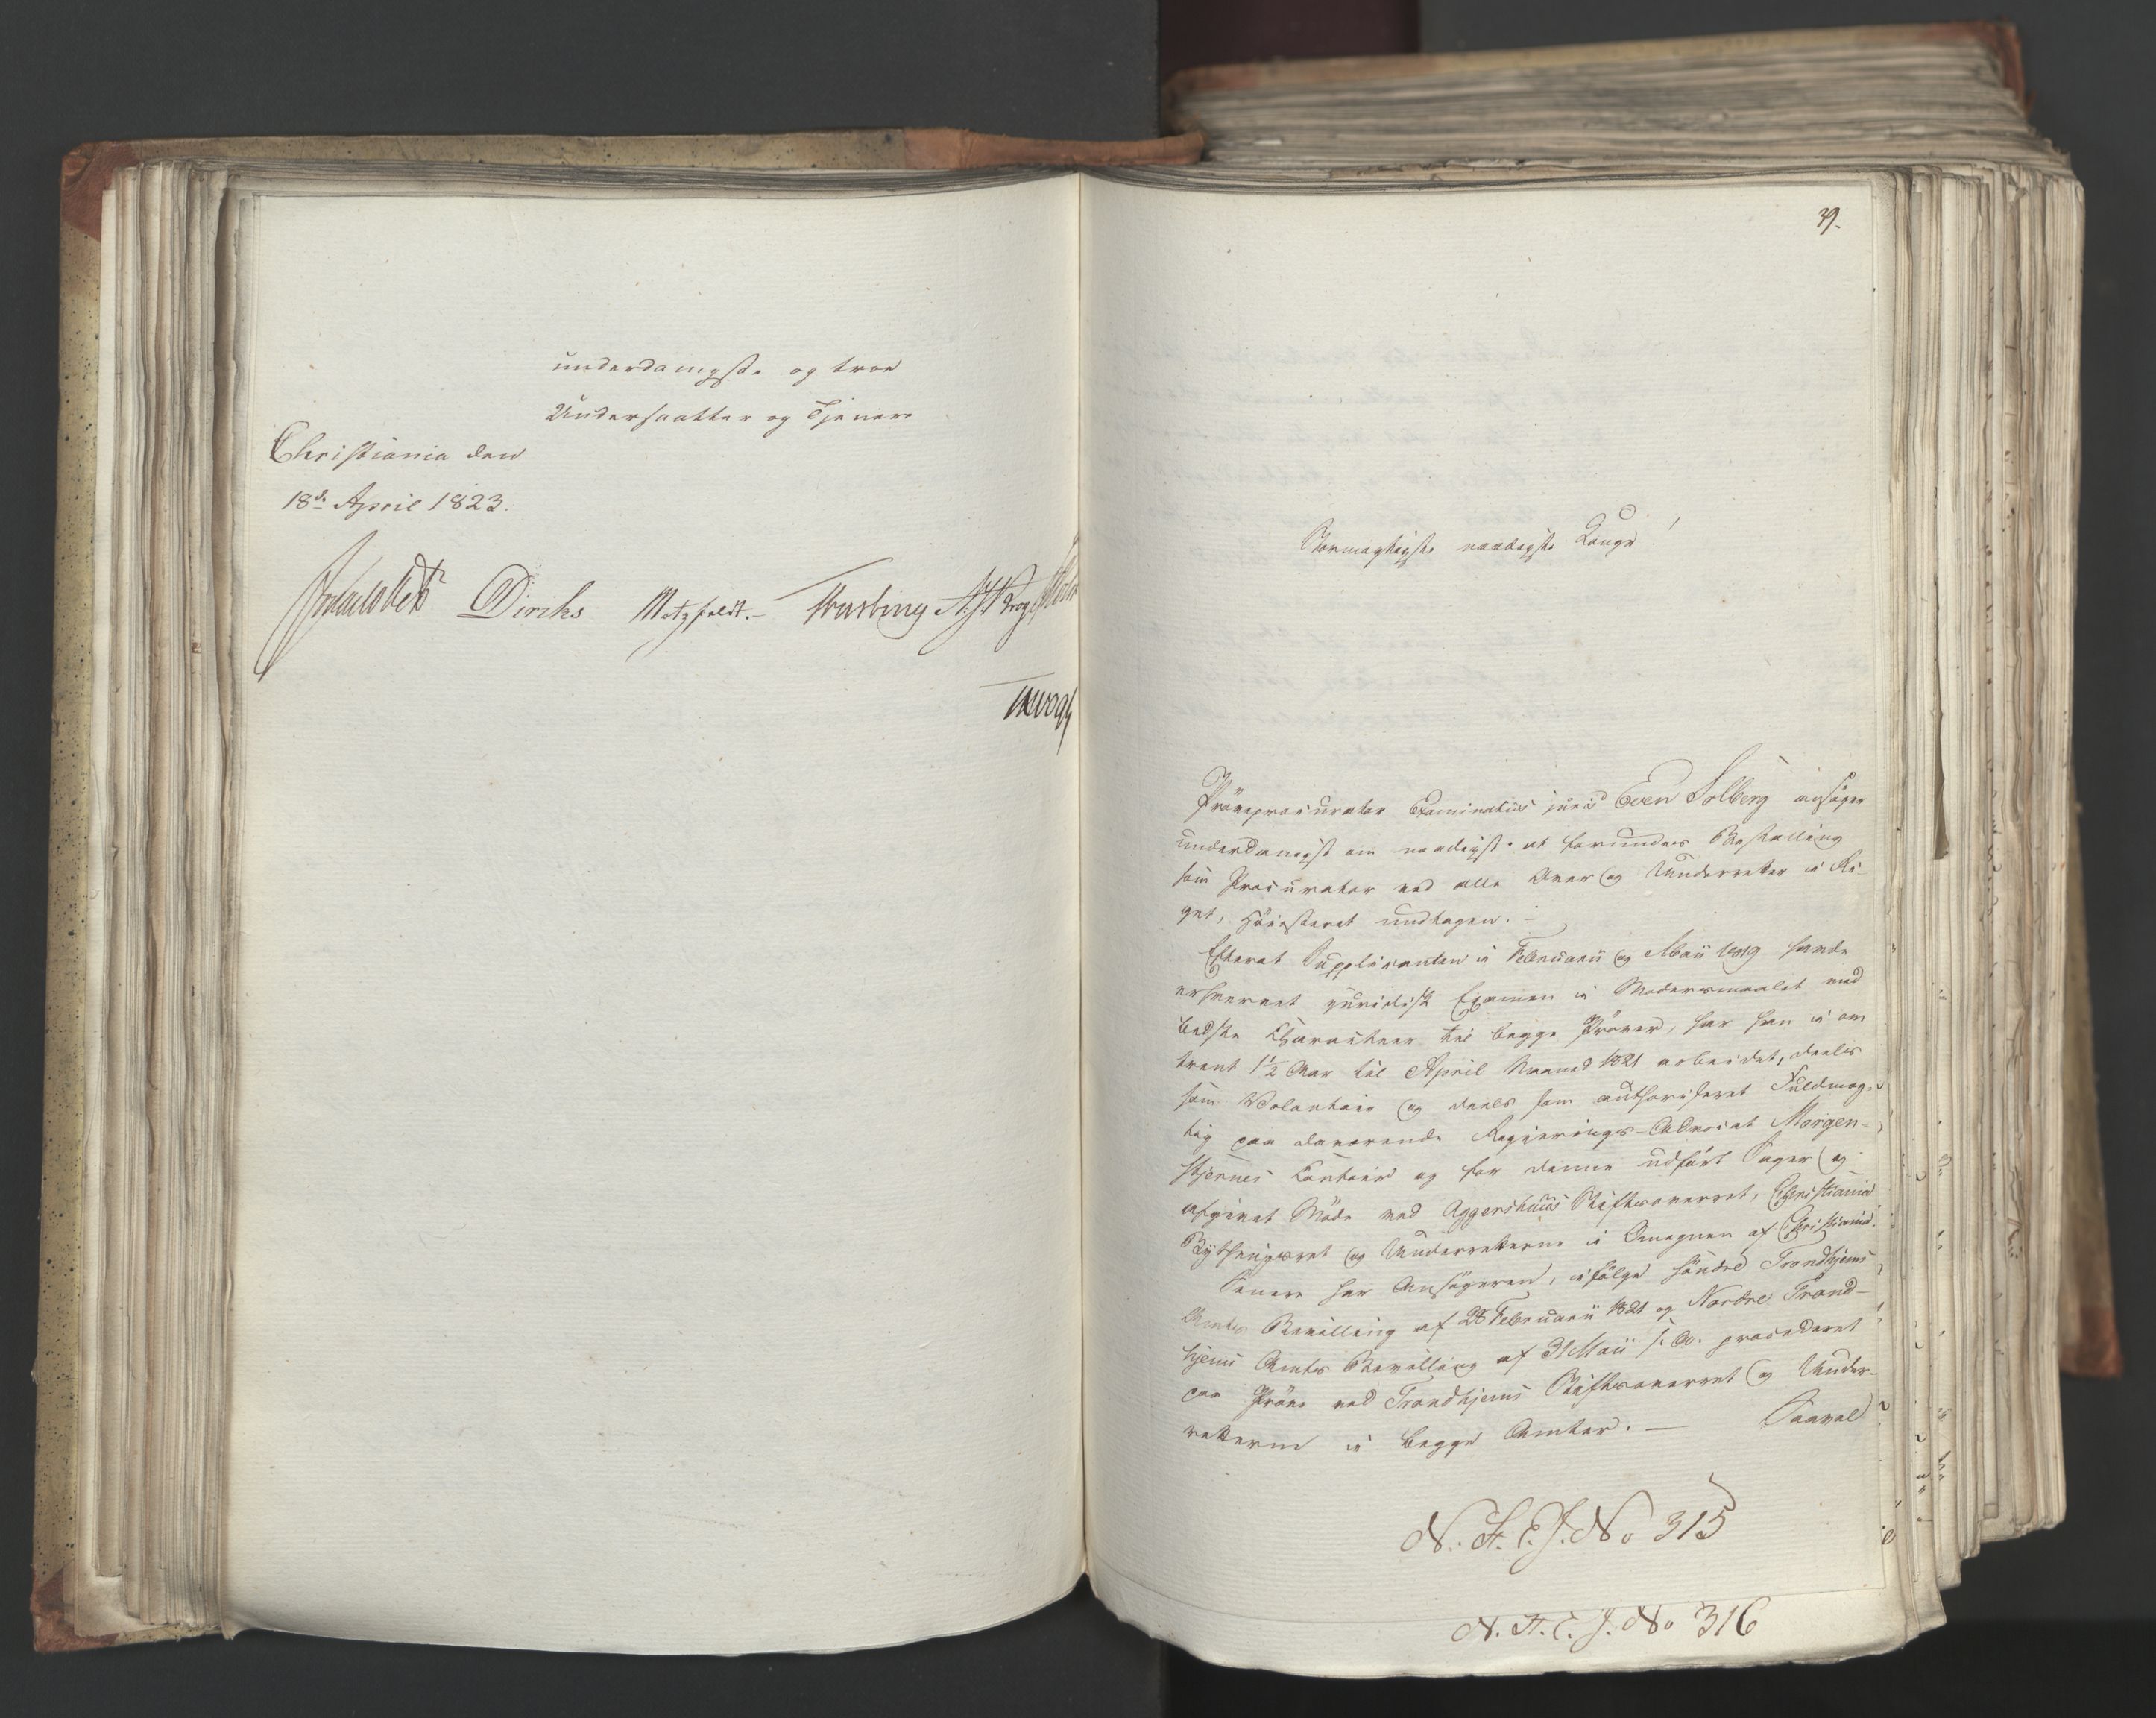 underdanigste og troe
Undersaatter og Tjenere
Christiania den
18de April 1823.
Diriks Motzfeldt.
39.
Stormægtigste naadigste Konge!
Prøveprocurator Examinatus juris Even Solberg ansøger
underdanigst om naadigst at forundes Bestalling
som Procurator ved alle Over og Underretter i Ri-
get, Høiesteret undtagen. —
Efterat Supplicanten i Februarii og Maii 1819 havde
erhvervet juridisk Examen i Modersmaalet med
bedste Charakteer til begge Prøver, har han i om
trent 1½ Aar til April Maaned 1821 arbeidet, deels
som Volontair og deels som authoriseret Fuldmæg-
tig paa daværende Regjerings-Advocat Morgen-
stjernes Contoir og for denne udført Sager og
afgivet Møde ved Aggershuus Stiftsoverret, Christiania
Bythingsret og Underretterne i Omegnen af Christiania.
Senere har Ansøgeren, ifølge Søndre Trondhjems
Amts Bevilling af 28 Februarii 1821 og Nordre Trond-
hjems Amts Bevilling af 31 Maii s. A. procederet
paa Prøve ved Trondhjems Stiftsoverret og Under-
retterne i begge Amter. — Saavel
N. A. E. J. No 315
N. A. E. J. No 316